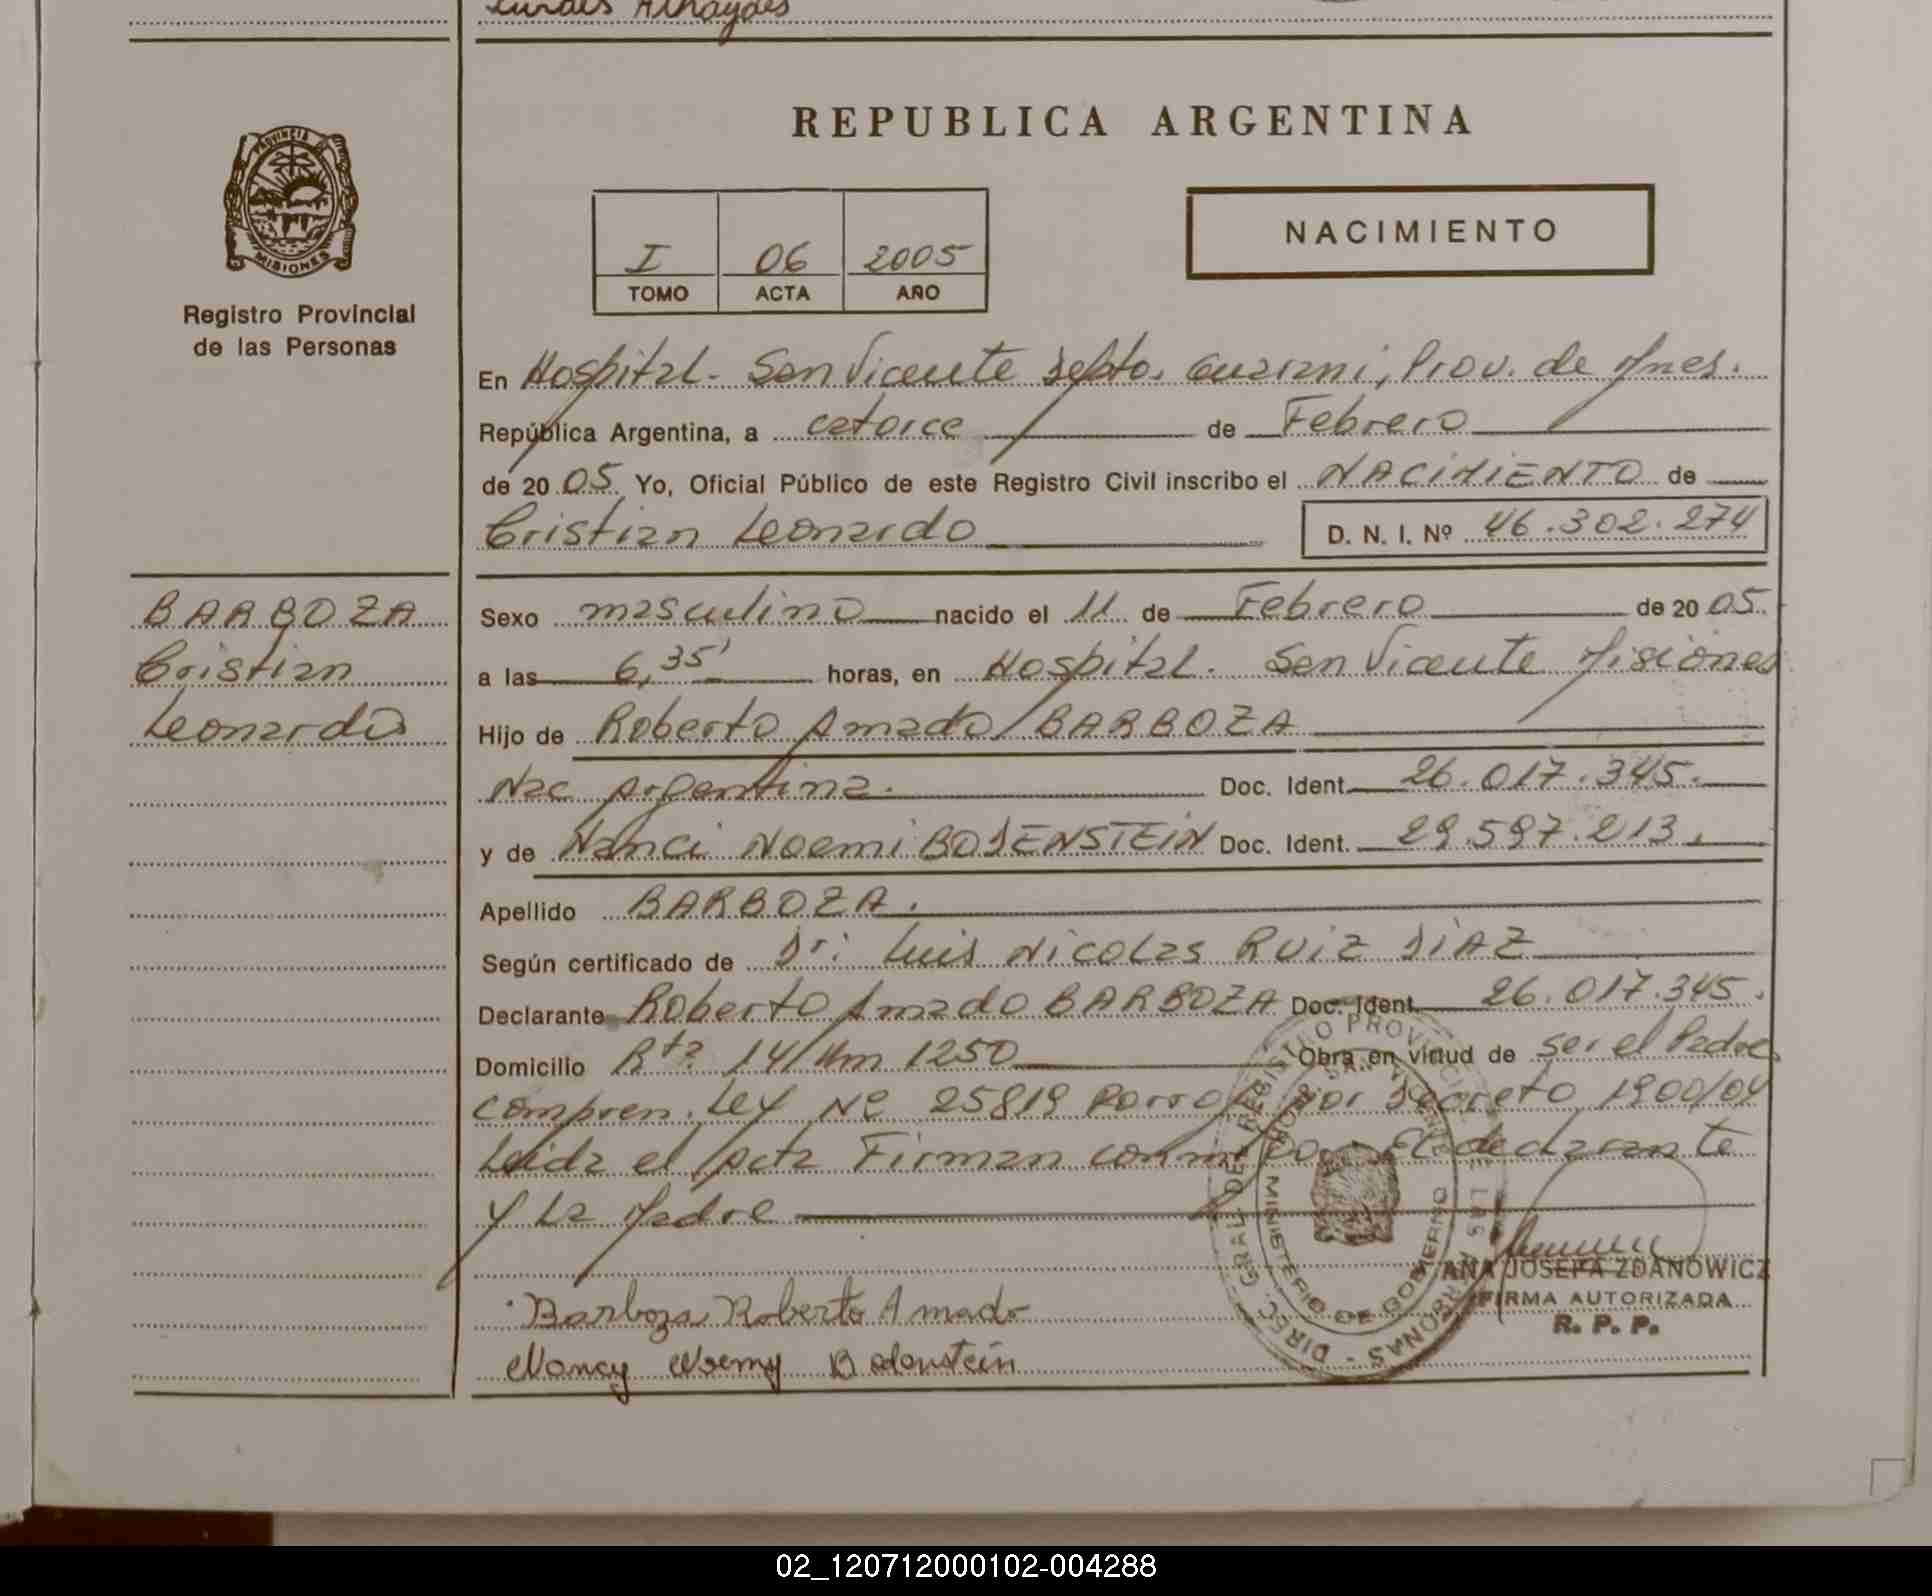 Lurdes Athaydes
REPUBLICA ARGENTINA
PROVINCIA DE
MISIONES
Registro Provincial
de las Personas
I 06 2005
TOMO ACTA AÑO
NACIMIENTO
En Hospital. San Vicente Depto. Guarani, Prov. de Mnes.
República Argentina, a catorce de Febrero
de 2005 Yo, Oficial Público de este Registro Civil inscribo el NACIMIENTO de
Cristian Leonardo D. N. I. Nº 46.302.274
BARBOZA
Cristian
Leonardo
Sexo masculino nacido el 11 de Febrero de 2005.
a las 6,35' horas, en Hospital. San Vicente Misiones
Hijo de Roberto Amado BARBOZA
Nac Argentina. Doc. Ident. 26.017.345.
y de Nanci Noemi BODENSTEIN Doc. Ident. 29.597.213.
Apellido BARBOZA.
Según certificado de Dr: Luis Nicolas RUIZ DIAZ
Declarante Roberto Amado BARBOZA Doc. Ident. 26.017.345.
Domicilio Rta 14 Km 1250 Obra en virtud de ser el Padre
compren. Ley Nº 25819 Porrog por Decreto 1900/04
Leida el Acta Firman conmigo El declarante
y La Madre
Barboza Roberto Amado
Nancy Noemy Bodenstein
DIREC. GRAL. DEL REGISTRO PROVINCIAL DE LAS PERSONAS -
MINISTERIO DE GOBIERNO
SAN VICENTE
ANA JOSEFA ZDANOWICZ
FIRMA AUTORIZADA
R. P. P.
02_120712000102-004288